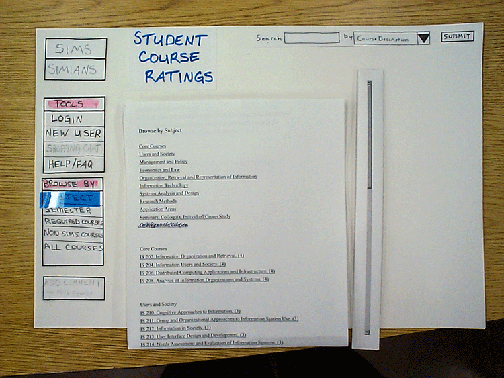 STUDENT
COURSE
RATINGS
Search by Course Description SUBMIT
SIMS
SIMIANS
TOOLS
LOGIN
NEW USER
SHOPPING CART
HELP/FAQ
BROWSE BY:
SEMESTER
REQUIRED COURSES
NON SIMS COURSES
ALL COURSES
ADD COMMENT
Browse by Subject
Core Courses
Users and Society
Management and Policy
Economics and Law
Organization, Retrieval and Representation of Information
Information Technology
Systems Analysis and Design
Research Methods
Application Areas
Core Courses
IS 202. Information Organization and Retrieval.
IS 204. Information Users and Society.
IS 206. Distributed Computing Applications and Infrastructure.
IS 208. Analysis of Information Organizations and Systems.
Users and Society
IS 210. Cognitive Approaches to Information.
IS 212. Information in Society.
IS 213. User Interface Design and Development.
IS 214. Needs Assessment and Evaluation of Information Systems.